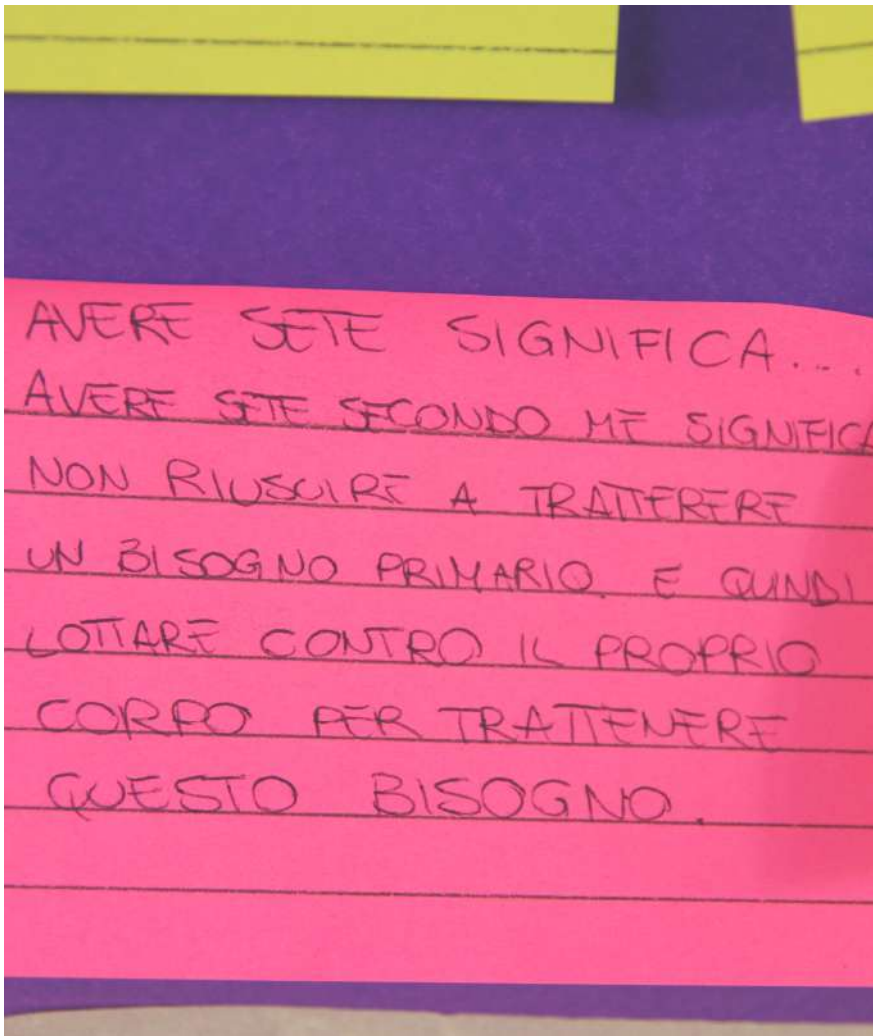 AVERE SETE SIGNIFICA...
AVERE SETE SECONDO ME SIGNIFICA
NON RIUSCIRE A TRATTERERE
UN BISOGNO PRIMARIO. E QUINDI
LOTTARE CONTRO IL PROPRIO
CORPO PER TRATTENERE
QUESTO BISOGNO.